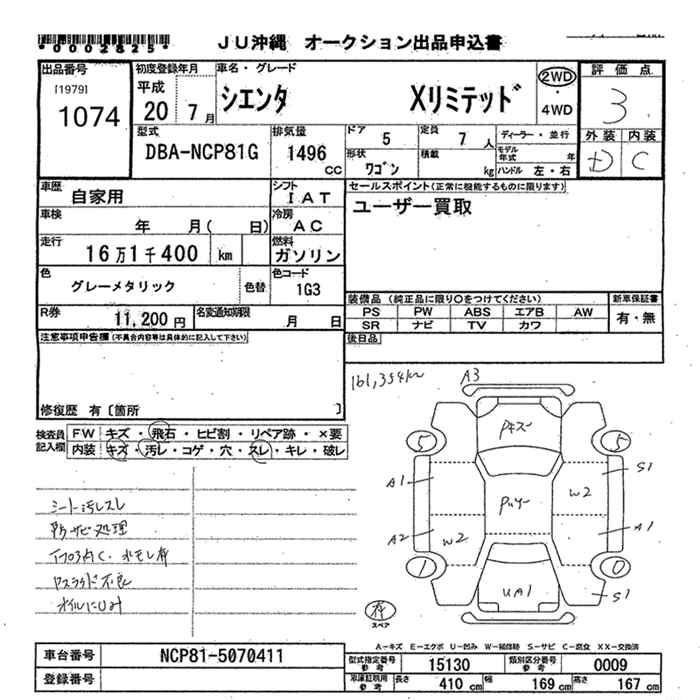 *0002825*
JU沖縄 オークション出品申込書
出品番号
[1979]
1074
初度登録年月
平成
20 7月
車名・グレード
シエンタ Xリミテッド
2WD
・
4WD
評価点
3
外装 内装
D C
型式
DBA-NCP81G
排気量
1496 CC
ドア 5
定員 7人
形状 ワゴン
積載 kg
ディーラー・並行
モデル年式 年
ハンドル 左・右
車歴 自家用
シフト IAT
車検 年 月( 日)
冷房 AC
走行 16万1千400 km
燃料 ガソリン
色 グレーメタリック 色替
色コード 1G3
R券 11,200円
名変通知期限 月 日
セールスポイント(正常に機能するものに限ります)
ユーザー買取
装備品(純正品に限り○をつけてください)
新車保証書
PS PW ABS エアB AW
有・無
SR ナビ TV カワ
後日品
注意事項申告欄(不具合内容等は具体的に記入して下さい)
修復歴 有〔箇所 〕
検査員記入欄
FW キズ・飛石・ヒビ割・リペア跡・×要
内装 キズ・汚レ・コゲ・穴・スレ・キレ・破レ
シート汚レスレ
防サビ処理
オイルにじみ
161,354km
A3
5 5
A1 S1
W2
A2 W2 A1
1 0
UA1 S1
スペア
A-キズ E-エクボ U-凹み W-補修跡 S-サビ C-腐食 XX-交換済
車台番号 NCP81-5070411
登録番号
型式指定番号 参考 15130
類別区分番号 参考 0009
車庫証明用 参考
長さ 410 cm
幅 169 cm
高さ 167 cm